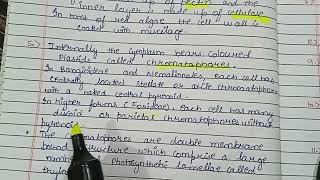 up of pectin and the
inner layer is made up of cellulose
In most of red algae the cell wall is
coated with mucilage
5) Internally the cytoplasm bears coloured
Plastids called chromatophores.
In Bangioideae and Nemalionales, each cell has
centrally located stellate or axile chromatophores
with a naked central pyrenoid.
In higher forms (Florideae), each cell has many
discoid or parietal chromatophores without
pyrenoids
The chromatophores are double membrane
bound structure which comprise a large
number Photosynthetic lamellae called
thyla